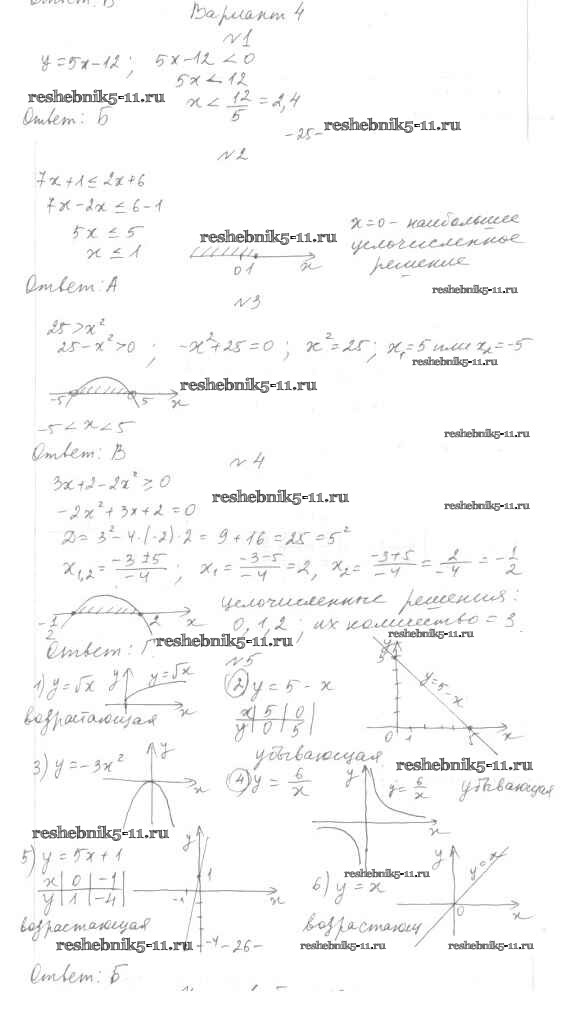 Ответ: В
Вариант 4
№1
y = 5x-12 ; 5x-12 < 0
5x < 12
reshebnik5-11.ru
x < 12/5 = 2,4
Ответ: Б
-25-
reshebnik5-11.ru
№2
7x+1 ≤ 2x+6
7x-2x ≤ 6-1
5x ≤ 5
x ≤ 1
reshebnik5-11.ru
0 1 x
x=0 - наибольшее
целочисленное
решение
Ответ: А
reshebnik5-11.ru
№3
25 > x²
25-x² > 0 ; -x²+25=0 ; x²=25 ; x₁=5 или x₂=-5
reshebnik5-11.ru
reshebnik5-11.ru
-5 5 x
-5 < x < 5
reshebnik5-11.ru
Ответ: В
№4
3x+2-2x² ≥ 0
reshebnik5-11.ru
-2x²+3x+2=0
reshebnik5-11.ru
D = 3²-4·(-2)·2 = 9+16 = 25 = 5²
x₁,₂ = -3±5/-4 ; x₁ = -3-5/-4 = 2, x₂ = -3+5/-4 = 2/-4 = -1/2
-1/2 2 x
целочисленные решения:
0, 1, 2 ; их количество = 3
reshebnik5-11.ru
Ответ: Г
reshebnik5-11.ru
№5
1) y=√x
y y=√x x
возрастающая
2) y = 5 - x
x 5 0
y 0 5
убывающая
y 5 y=5-x 0 1 5 x
reshebnik5-11.ru
3) y = -3x²
y x
4) y = 6/x
y y=6/x x
убывающая
reshebnik5-11.ru
5) y = 5x+1
x 0 -1
y 1 -4
y 1 -1 x -4
возрастающая
reshebnik5-11.ru
-26-
reshebnik5-11.ru
6) y = x
y y=x 0 x
возрастающ
reshebnik5-11.ru
reshebnik5-11.ru
Ответ: Б